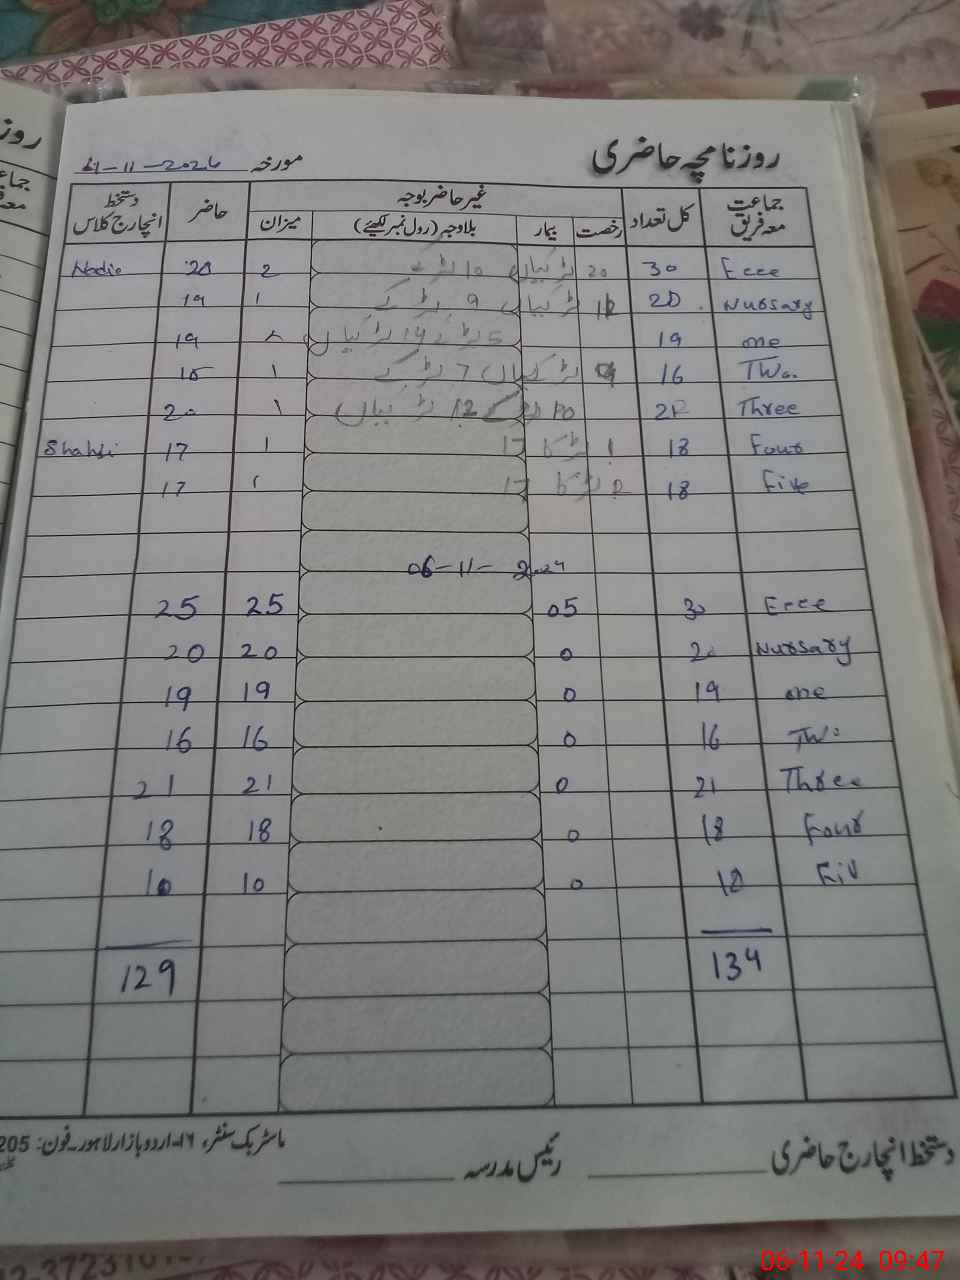 روزنامچہ حاضری
مورخہ -11-2024
جماعت معہ فریق کل تعداد غیر حاضر بوجہ حاضر دستخط انچارج کلاس
رخصت بیمار بلاوجہ (رول نمبر لکھیئے) میزان
Ecce 30 20 لڑکیاں 10 لڑکے 2 28 Nadia
Nursary 20 لڑکیاں 9 لڑکے 1 19
one 19 5 لڑکے 14 لڑکیاں 19
Two. 16 لڑکیاں 7 لڑکے 1 15
Three 21 لڑکے 12 لڑکیاں 1 20
Four 18 1 لڑکا 17 1 17
Five 18 لڑکا 17 1 17
06-11-2024
Ecce 30 05 25 25
Nursary 20 0 20 20
one 19 0 19 19
Two 16 0 16 16
Three 21 0 21 21
Four 18 0 18 18
Fiv 10 0 10 10
134 129
ماسٹر بک سنٹر، ۱۶۔اردو بازار لاہور۔ فون: 205
دستخط انچارج حاضری رئیس مدرسہ
06-11-24 09:47